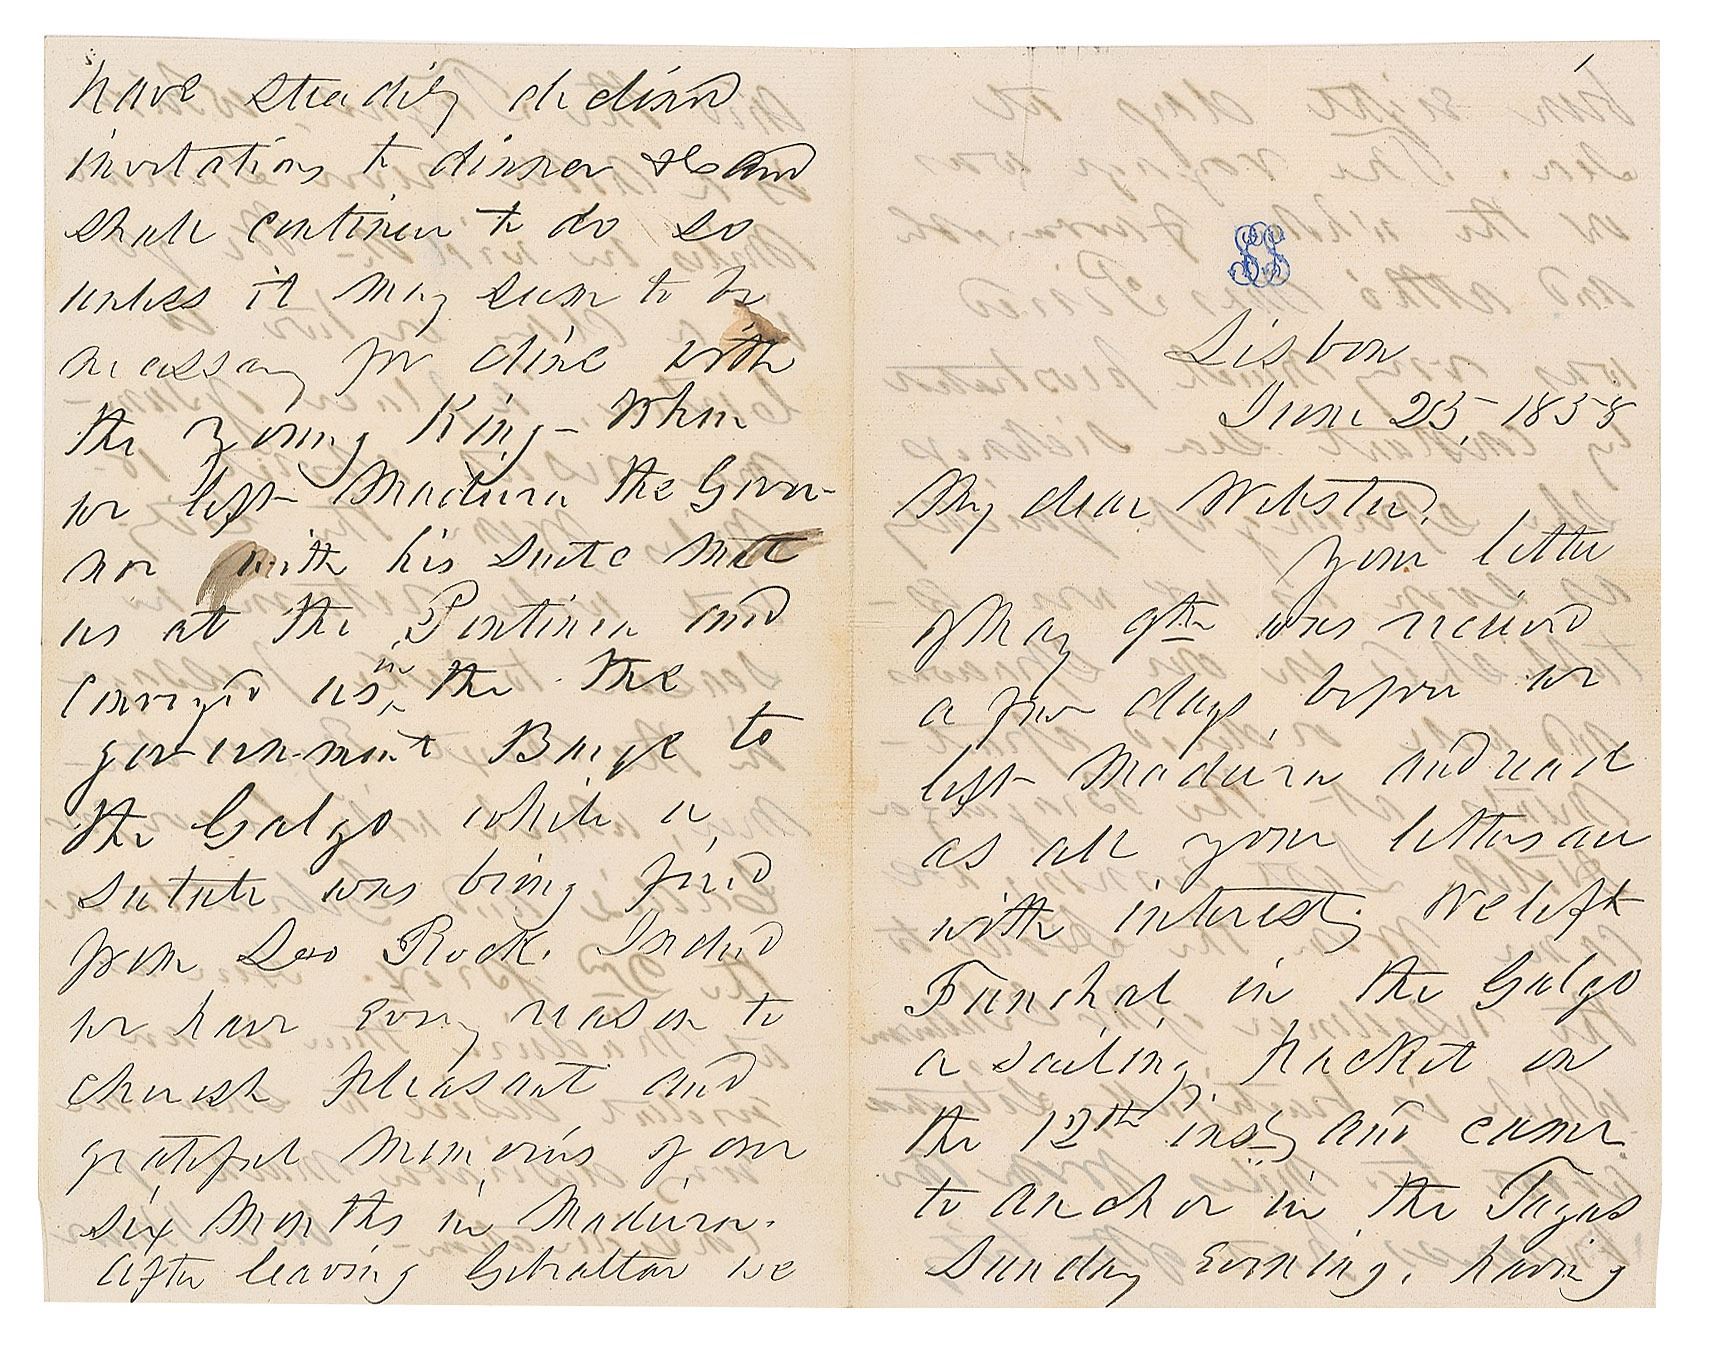 1
Lisbon
June 25, 1858
My dear Webster,
Your letter
of May 9th was received
a few days before we
left Madeira and read
as all your letters are
with interest. We left
Funchal in the Galgo
a sailing packet on
the 12th inst, and came
to anchor in the Tagus
Sunday Evening, having
have steadily declined
invitations to dinner &c and
shall continue to do so
unless it may seem to be
necessary for dine with
the young King - When
we left Madeira the Gover-
nor with his suite met
us at the Pontinea and
conveyed us in the the
government Barge to
the Galgo while a
salute was being fired
from Loo Rock. Indeed
we have every reason to
cherish pleasant and
grateful memories of our
six months in Madeira.
After leaving Gibraltar we